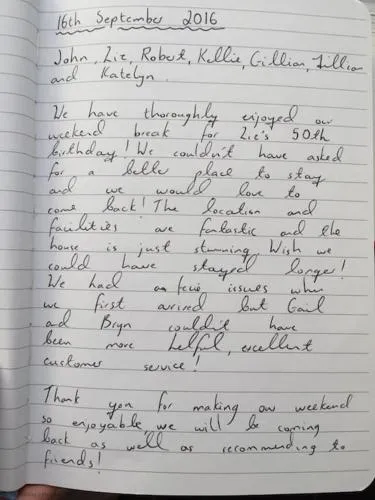 16th September 2016
John, Liz, Robert, Kellie, Gillian, Jillian
and Katelyn
We have thoroughly enjoyed our
weekend break for Liz's 50th
birthday! We couldn't have asked
for a better place to stay
and we would love to
come back! The location and
facilities are fantastic and the
house is just stunning. Wish we
could have stayed longer!
We had a few issues when
we first arrived but Gail
and Bryn couldn't have
been more helful, excellent
customer service!
Thank you for making our weekend
so enjoyable, we will be coming
back as well as recommending to
friends!